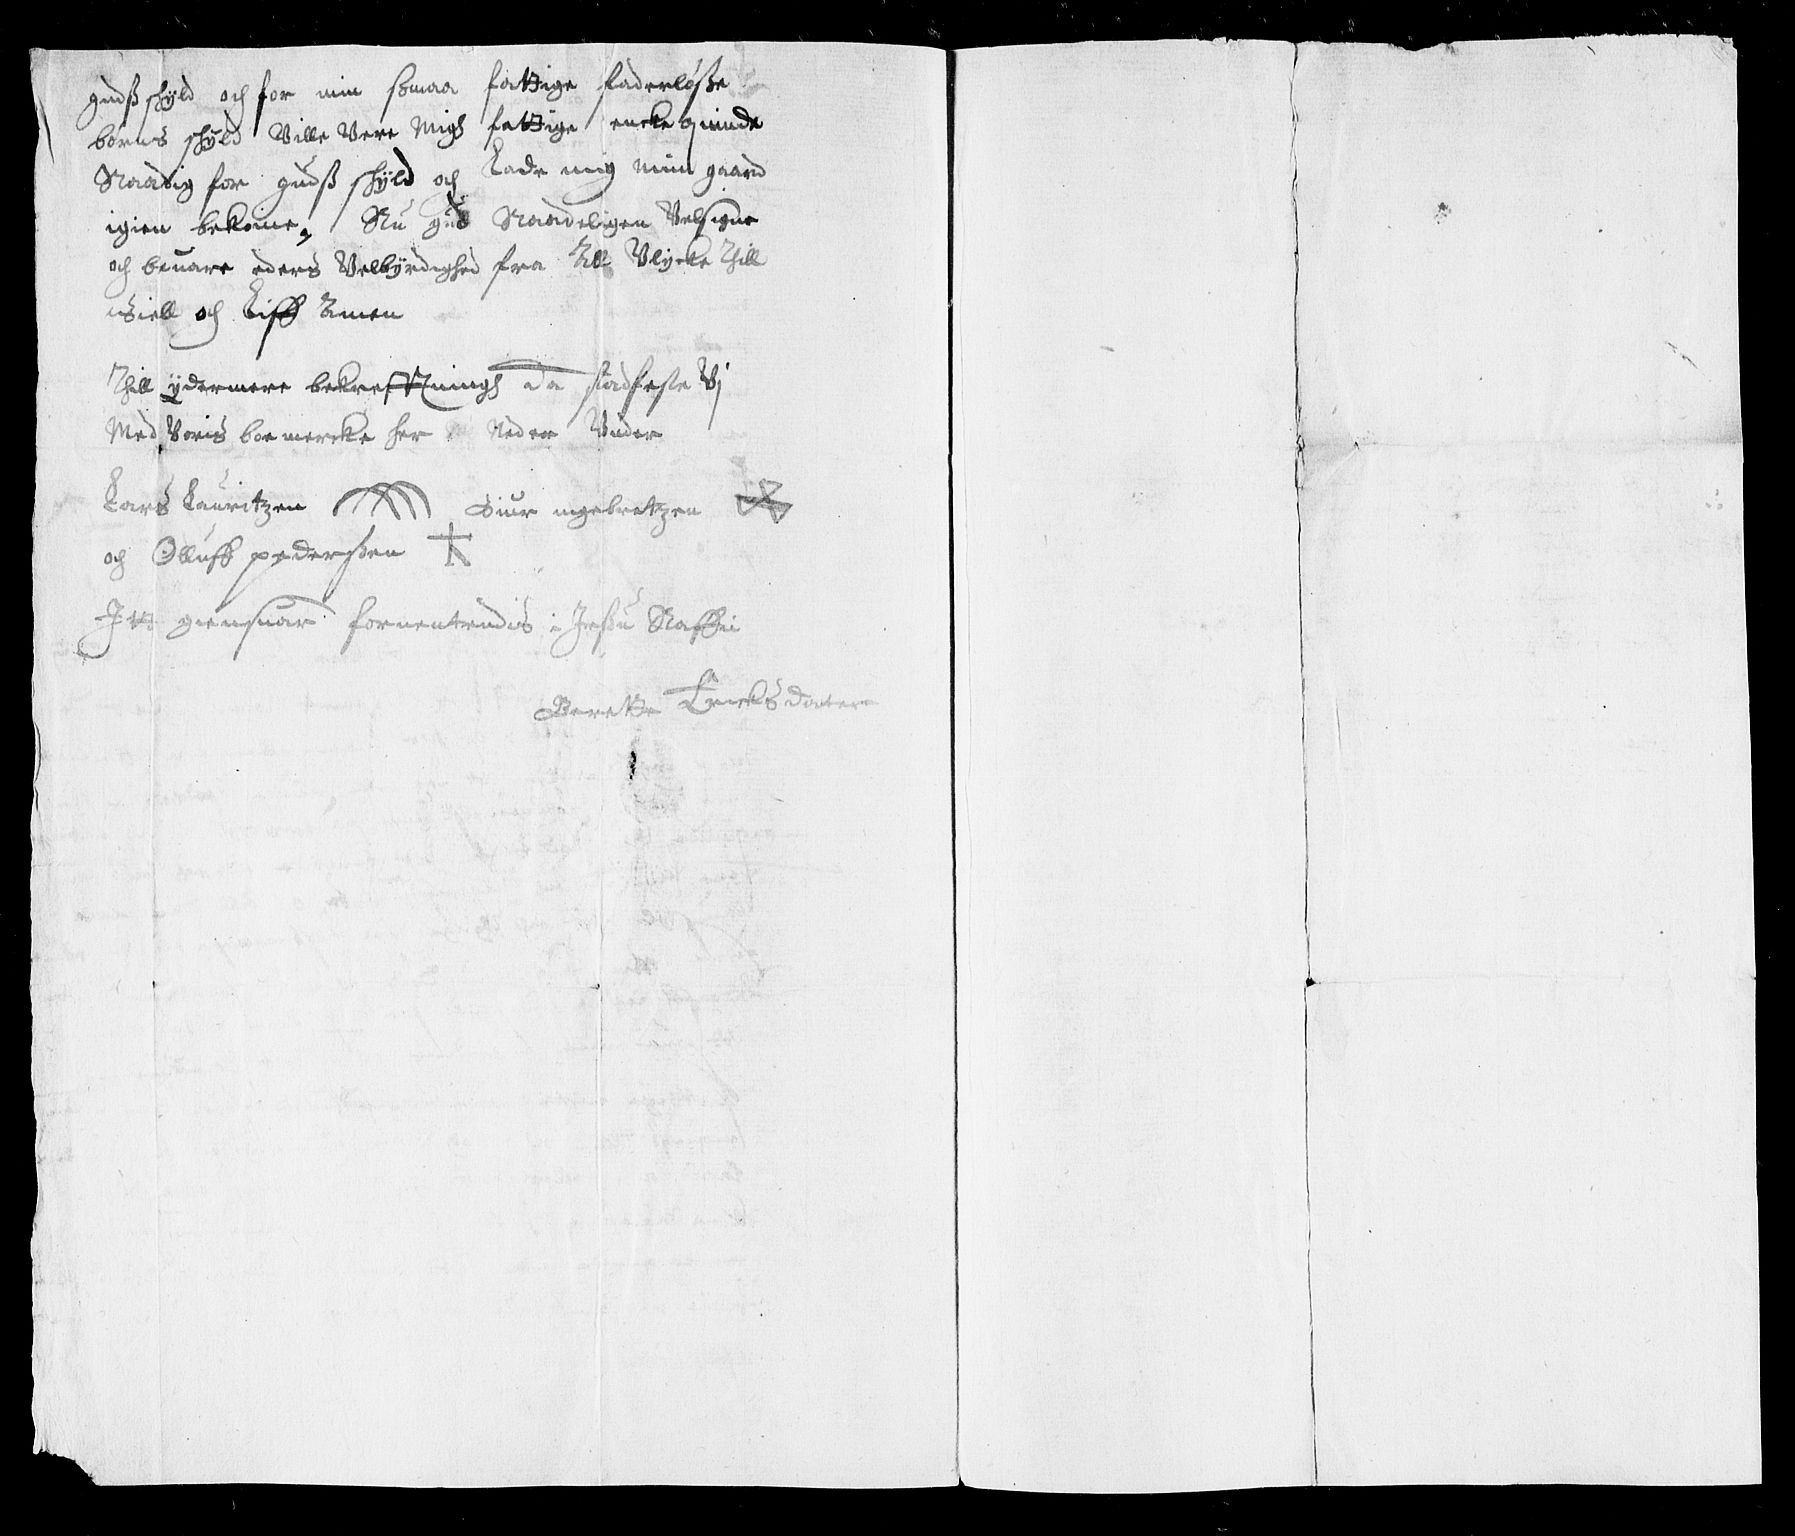 gudß schÿld och for min ßmaa fattige faderløße
børns schÿld Ville Vere Migh fattige encke quinde
Naadig for gudß schÿld och Lade mig min gaard
igien bekome, Nu gud Naadeligen Velsigne
och beuare eders Velbÿrdighed fra All Vlycke Thill
Siell och Liff Amen
Thill ÿdermere bekrefftningh da stadfeste Vj
Med Voris boemercke her Neder Vnder
Lars Lauritzen Siur ingebretzen
och Olluff pederßen
Jtt giensuar forventendis i Jeßu Naffn
Berette Ericksdaater